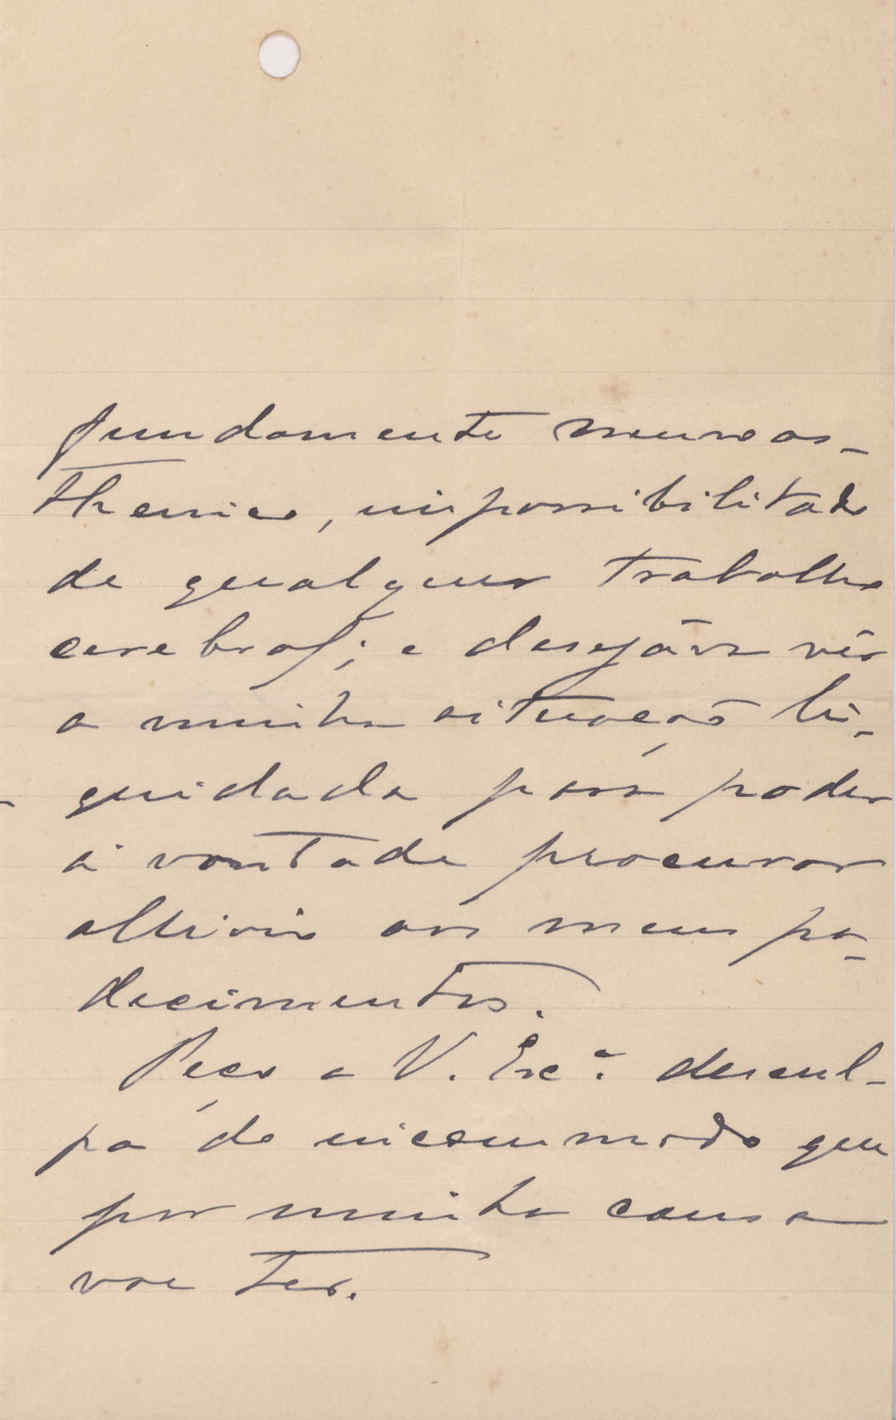 fundamente neuras-
thenico, impossibilitado
de qualquer trabalho
cerebral; e desejáva vêr
a minha situação li-
quidada para poder
á vontade procurar
allivio aos meus pa-
decimentos.
Peço a V. Exc.ª descul-
pa do incommodo que
por minha causa
vae ter.